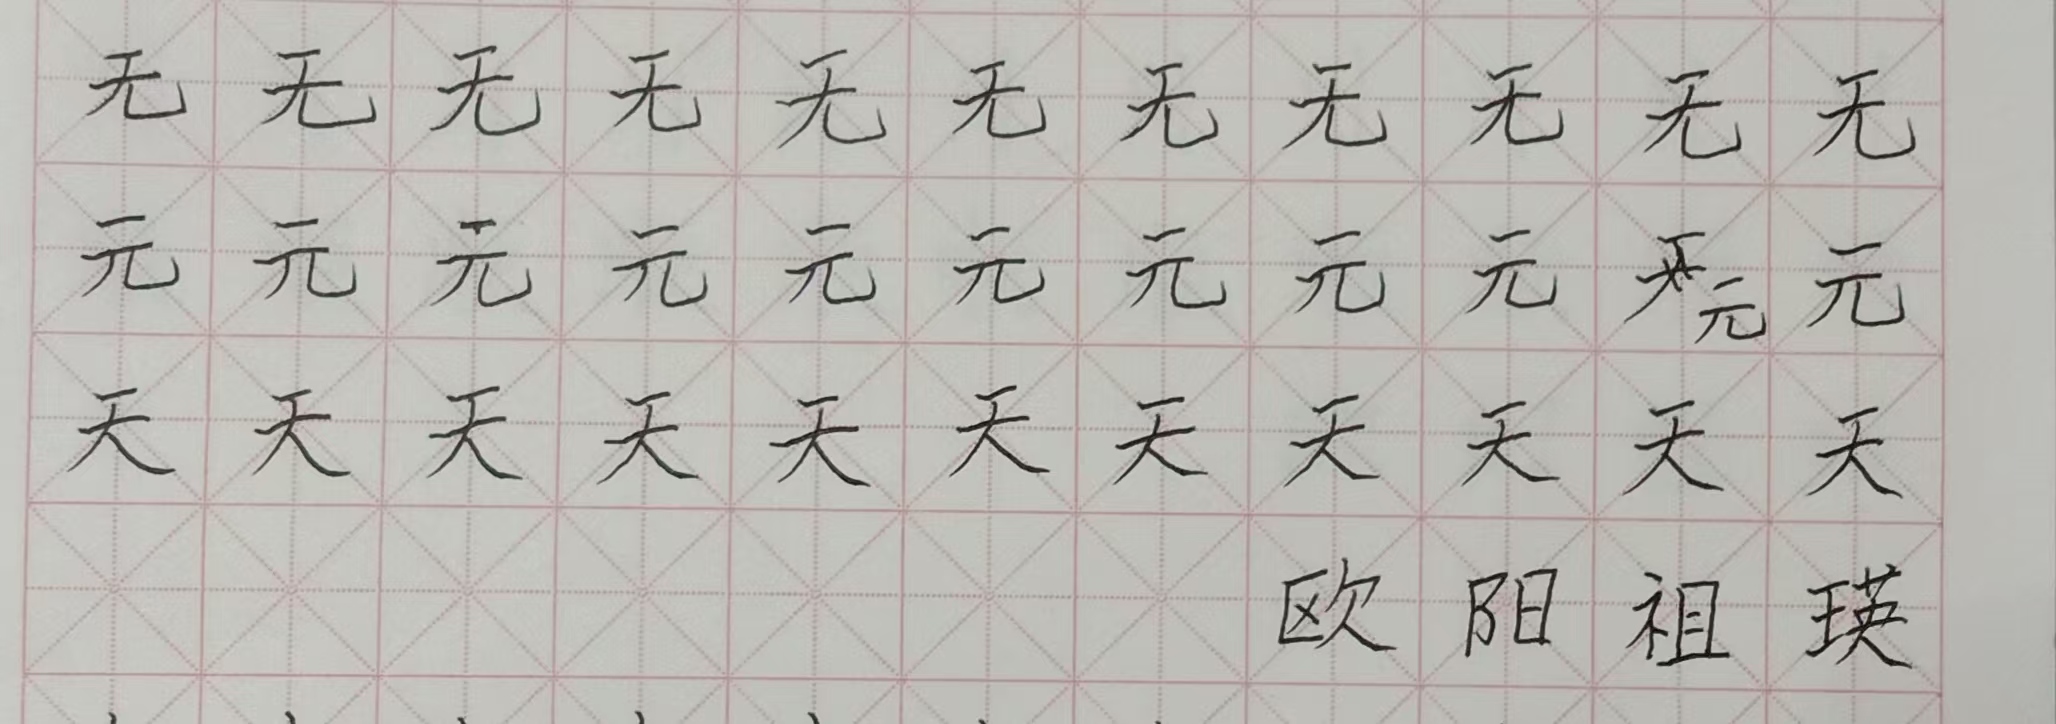 无无无无无无无无无无无
元元元元元元元元元元元
天天天天天天天天天天天
欧阳祖瑛